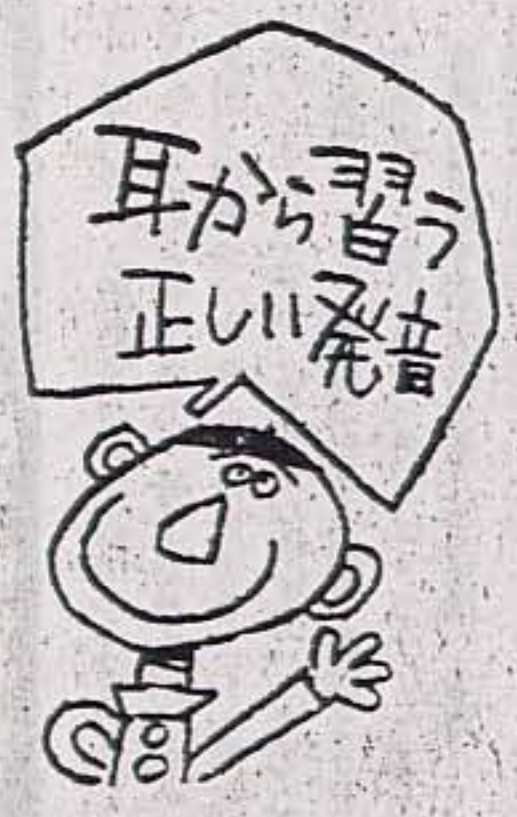 耳から習う
正しい発音